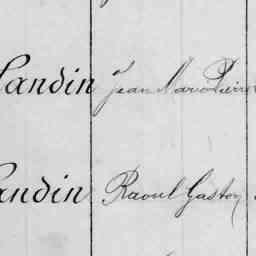 Landin Jean Marie Pierre
Landin Raoul Gaston